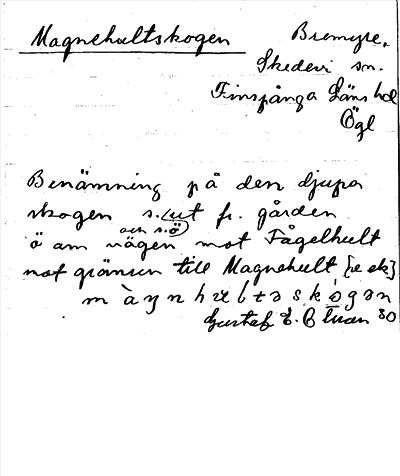 Magnehultskogen Bremyre,
Skedevi sn.
Finspånga Läns hd
Ögl
Benämning på den djupa
skogen s. ut fr. gården
och s.ö
ö om vägen mot Fågelhult
mot gränsen till Magnehult [se ek]
Gustaf E.
30